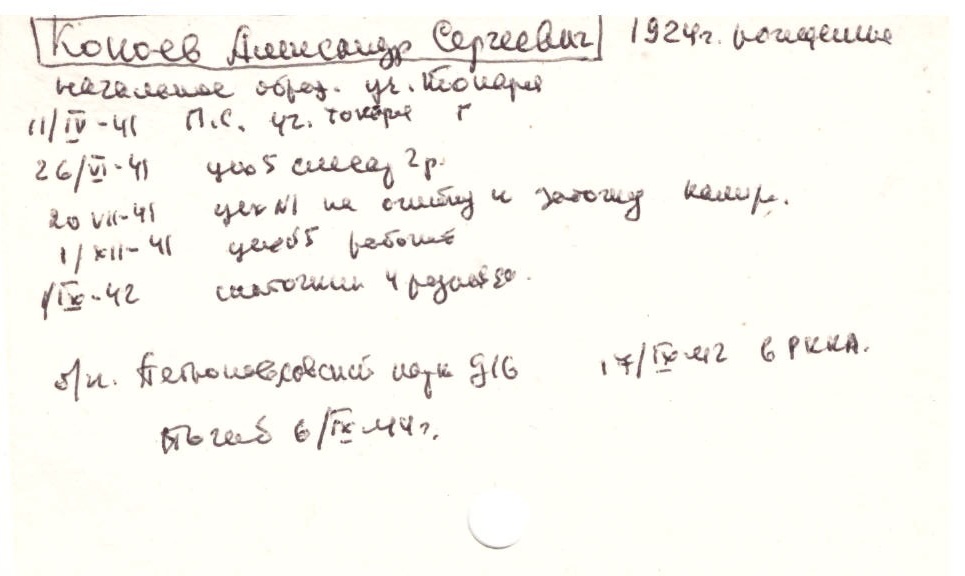 Конаев Александр Сергеевич 1924г. рождения
начальное образ. уч. токаря
11/IV-41 П.С. уч. токаря
26/VI-41 цех 5 слесар 2р.
20 VII-41 цех N1 на очистку и заточку калибр.
1/XII-41 цех 5 рабочий
1/IX-42 заточник 4 разряда.
б/п. Петропавловский парк 9/6 17/IX-42 в РККА.
Погиб 6/IX-44г.